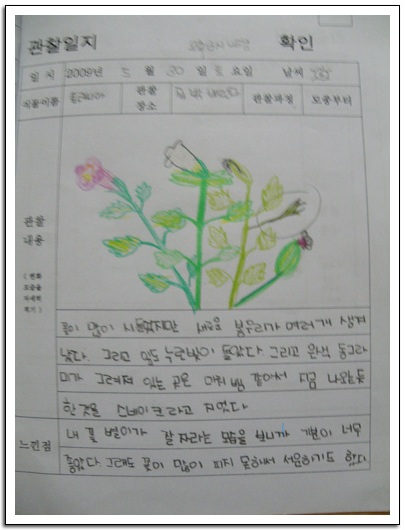 관찰일지 확인
일 시 2009년 5 월 30 일 토 요일 날씨
식물이름 관찰 장소 관찰과정 모종부터
관찰
내용
꽃이 많이 시들었지만 새로운 봉우리가 여러개 생겨
났다. 그리고 잎도 누런빛이 돌았다. 그리고 은색 동그라
미가 그려져 있는 곳은 마치 뱀 같아서 지금 나와는듯
한것은 스네이크라고 지었다
느낀점
내 꽃 별이가 잘 자라는 모습을 보니까 기분이 너무
좋았다. 그래도 꽃이 많이 피지 못해서 서운하기도 했다.